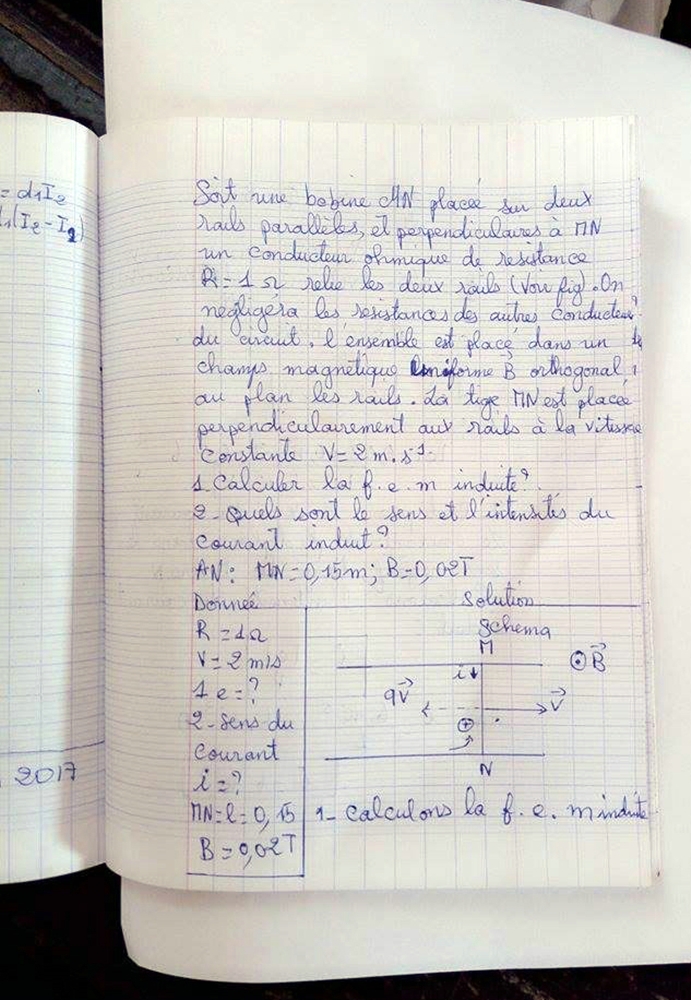 = d1I2
(I2 - I2)
2017
Soit une bobine MN placée sur deux
rails parallèles, et perpendiculaires à MN
un conducteur ohmique de resistance
R = 1 Ω relie les deux rails (Voir fig). On
negligera les resistances des autres conducteurs
du circuit. l'ensemble est placé dans un
champs magnetique uniforme B⃗ orthogonal
au plan les rails. La tige MN est placée
perpendiculairement aux rails à la vitesse
constante V = 2 m.s-1.
1-Calculer la f.e.m induite?
2-Quels sont le sens et l'intensités du
courant induit?
AN: MN = 0,15m; B = 0,02T
Donneé
R = 1Ω
V = 2 m/s
1 e = ?
2-sens du
courant
i = ?
MN = l = 0,15
B = 0,02T
Solution
Schema
M
B⃗
i
qV⃗
V⃗
+
N
1- Calculons la f.e.m induite